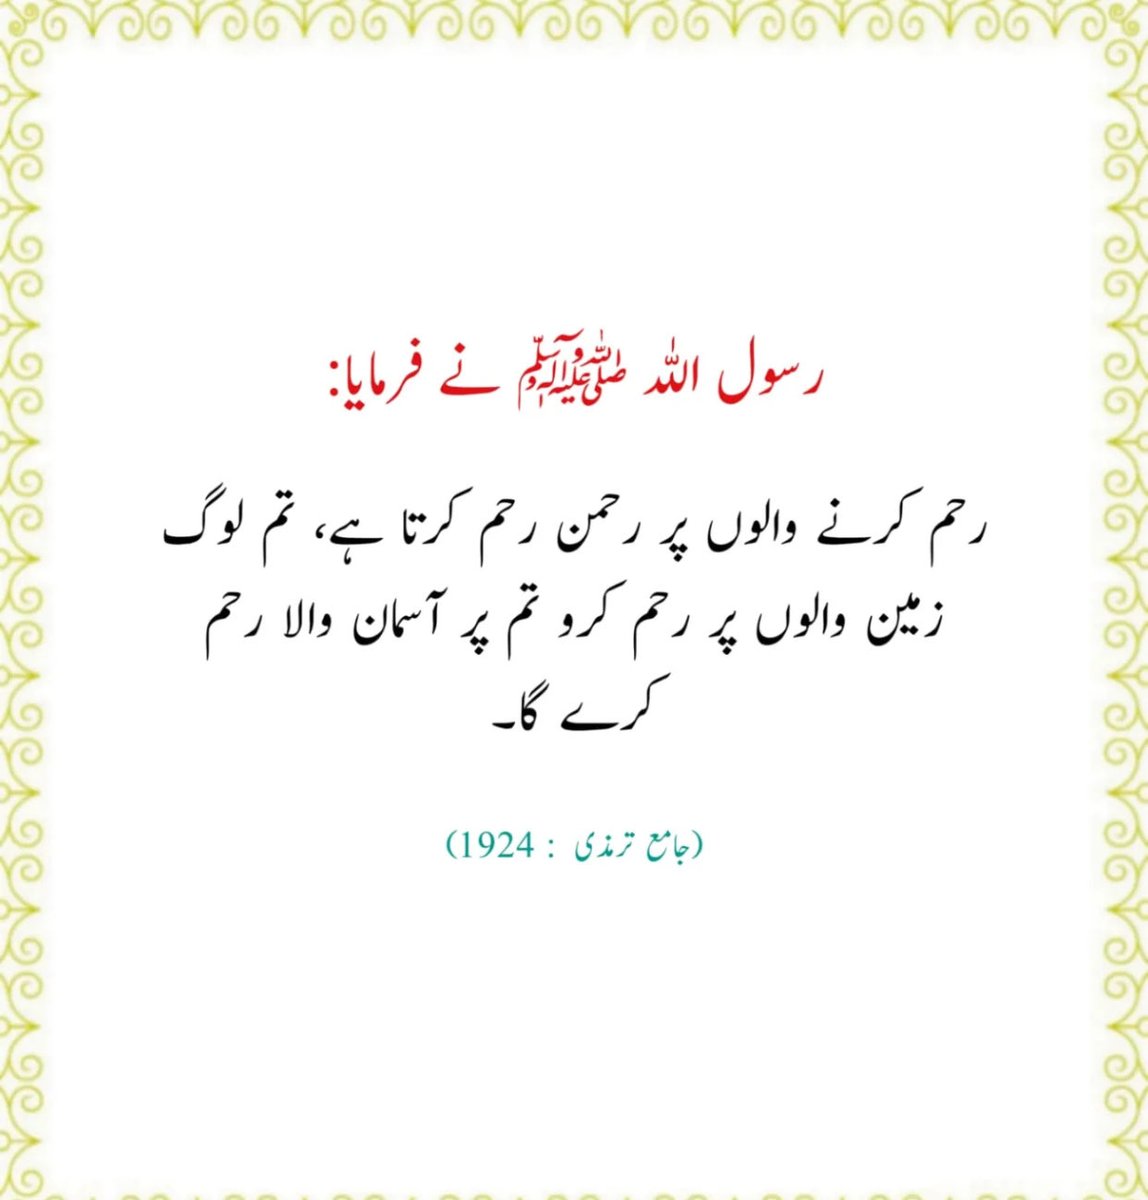 رسول اللہ ﷺ نے فرمایا:
رحم کرنے والوں پر رحمن رحم کرتا ہے، تم لوگ
زمین والوں پر رحم کرو تم پر آسمان والا رحم
کرے گا۔
(جامع ترمذی : 1924)